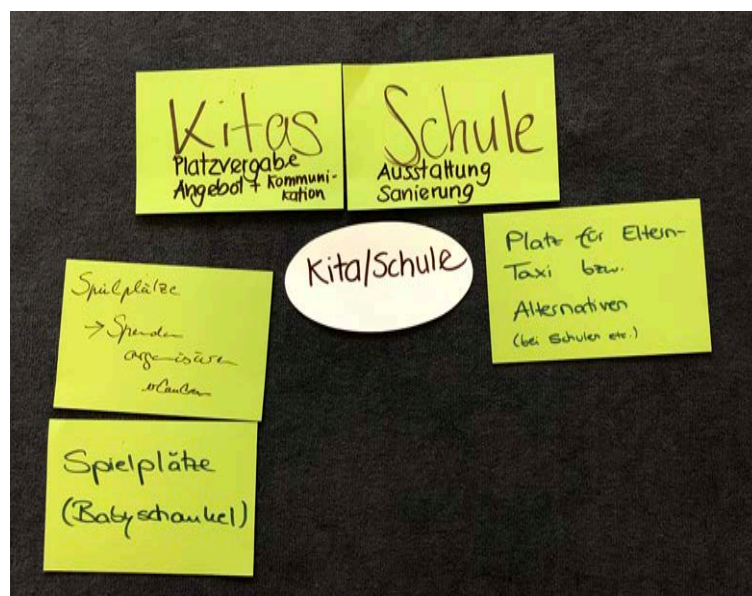 Kitas
Platzvergabe
Angebot + Kommuni-
kation
Schule
Ausstattung
Sanierung
Kita/Schule
Platz für Eltern-
Taxi bzw.
Alternativen
(bei Schulen etc.)
Spielplätze
→ Spenden
organisieren
Spielplätze
(Babyschaukel)